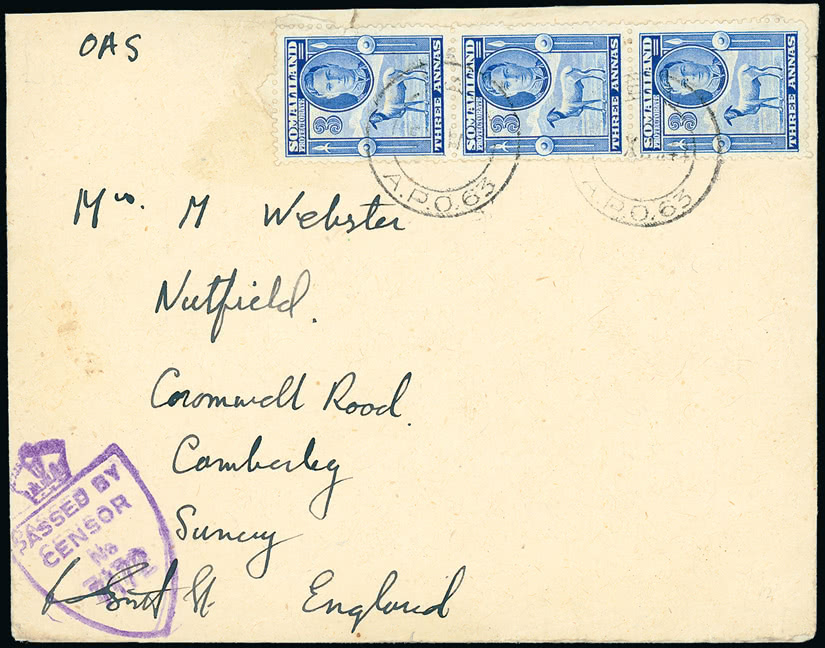 OAS
SOMALILAND PROTECTORATE 3 THREE ANNAS
SOMALILAND PROTECTORATE 3 THREE ANNAS
SOMALILAND PROTECTORATE 3 THREE ANNAS
A.P.O.63
A.P.O.63
Mrs. M Webster
Nutfield.
Cromwell Road.
Camberley
Surrey
England
PASSED BY
CENSOR
No